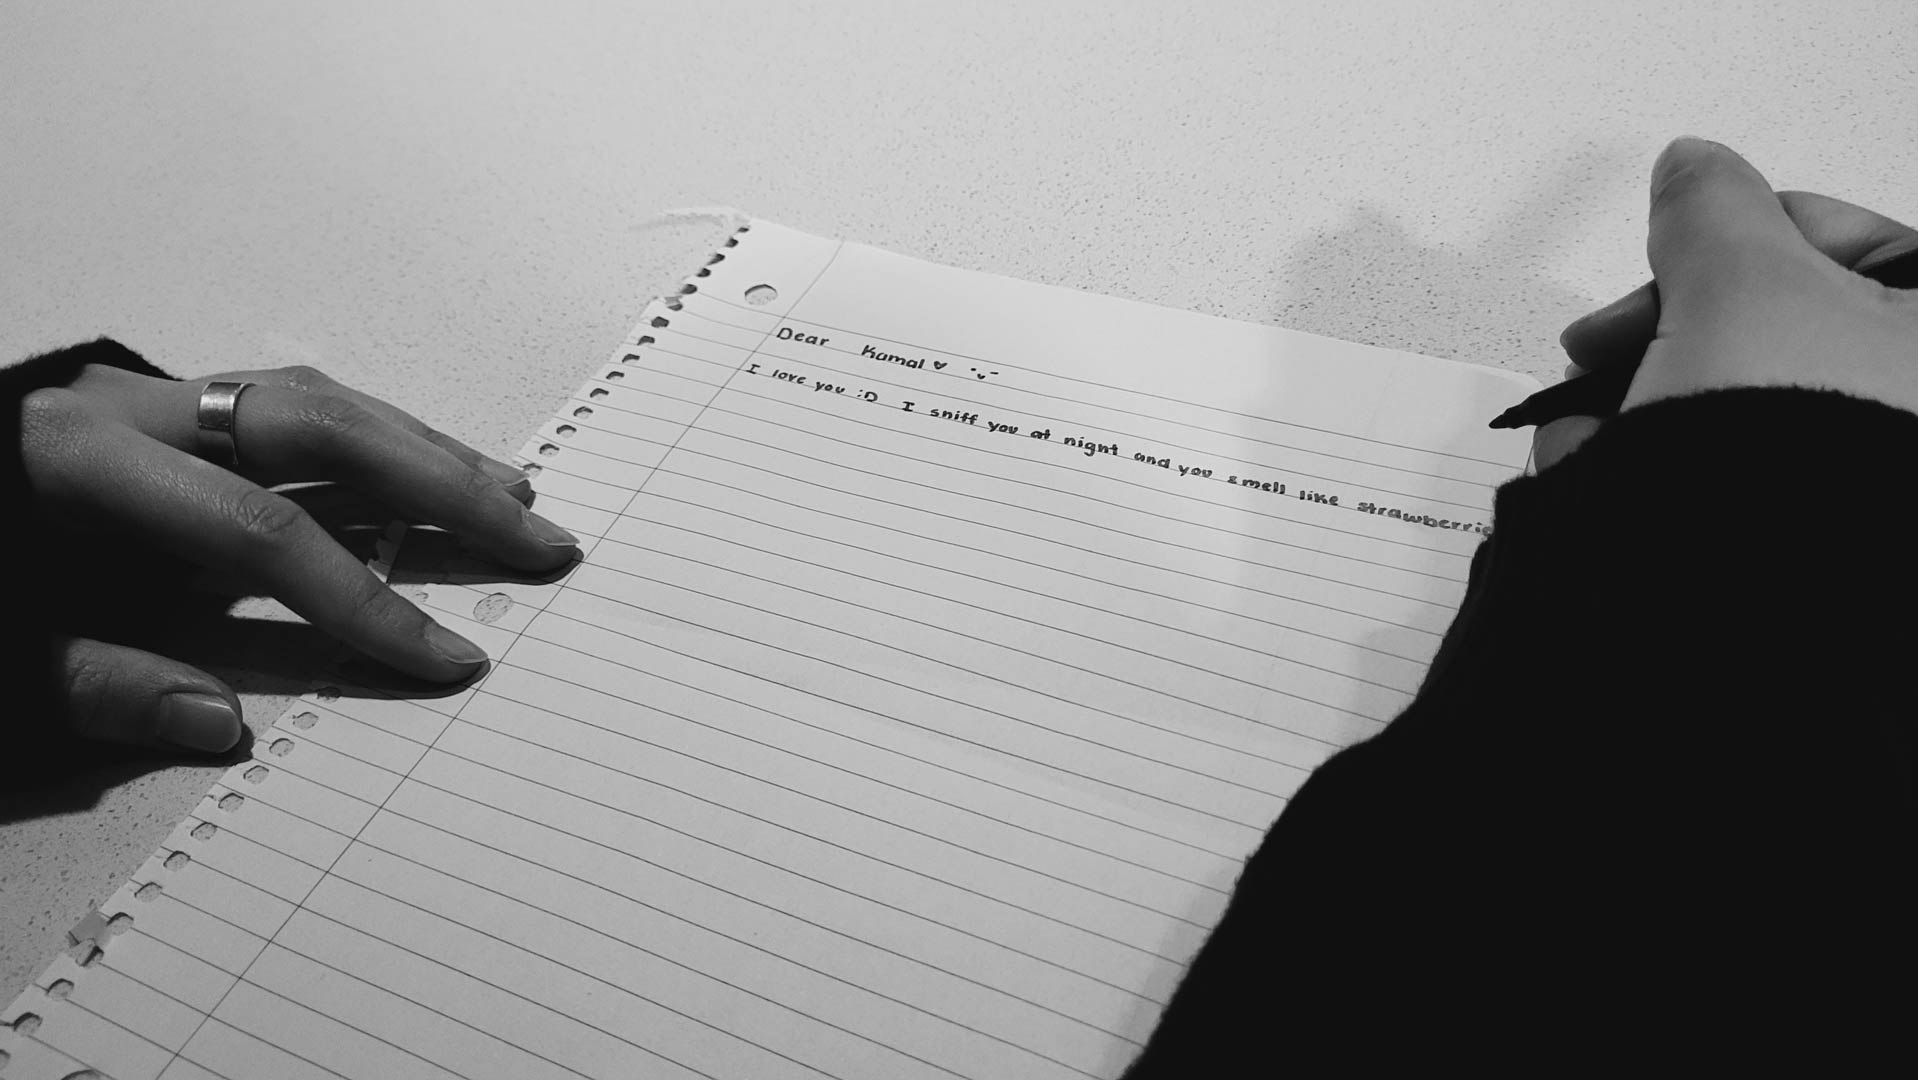 Dear Kamal ♡ ·ᴗ-
I love you :D I sniff you at night and you smell like strawberrie